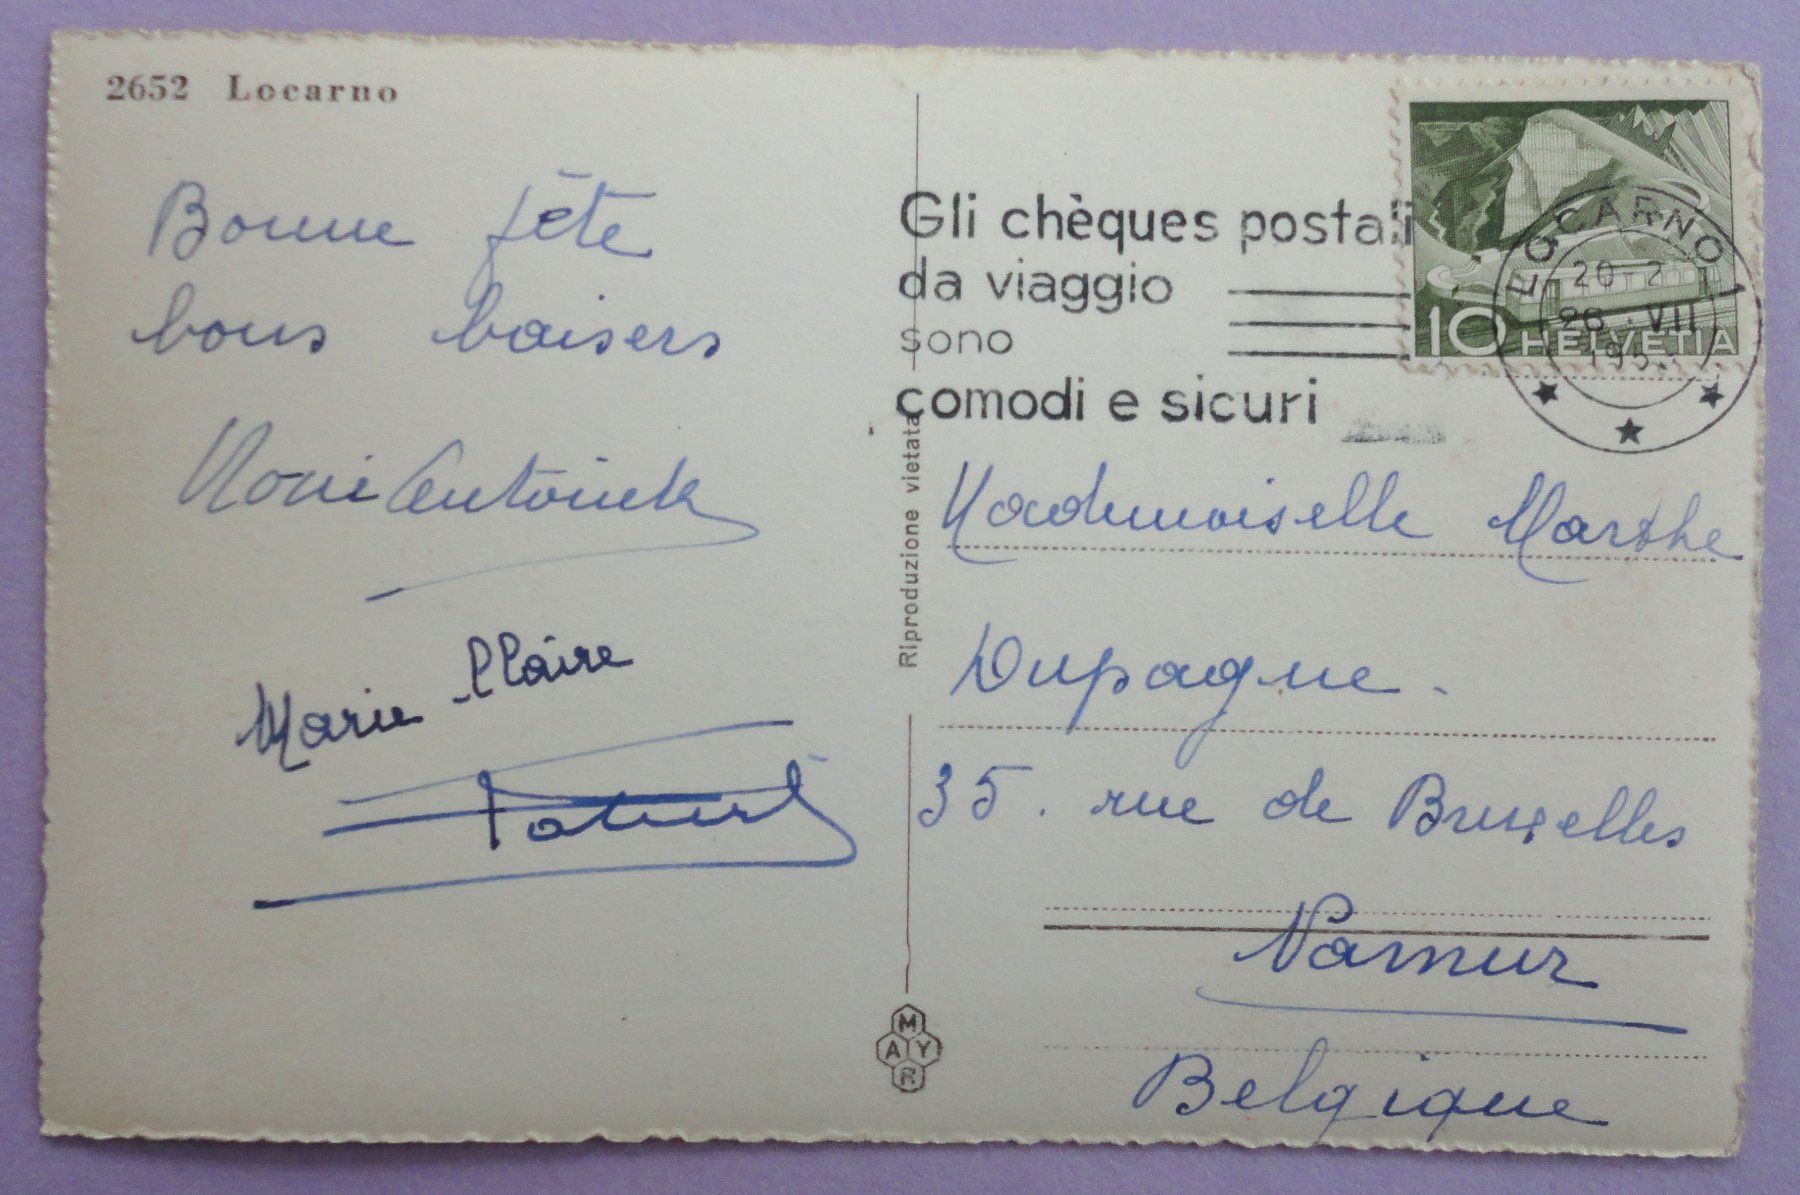 2652 Locarno
Bonne fête
bons baisers
Marie Claire
Gli chèques postali
da viaggio
sono
comodi e sicuri
10 HELVETIA
LOCARNO 1
VII
Riproduzione vietata
Mademoiselle Marthe
Dupagne.
35. rue de Bruxelles
Namur
Belgique
MAYR